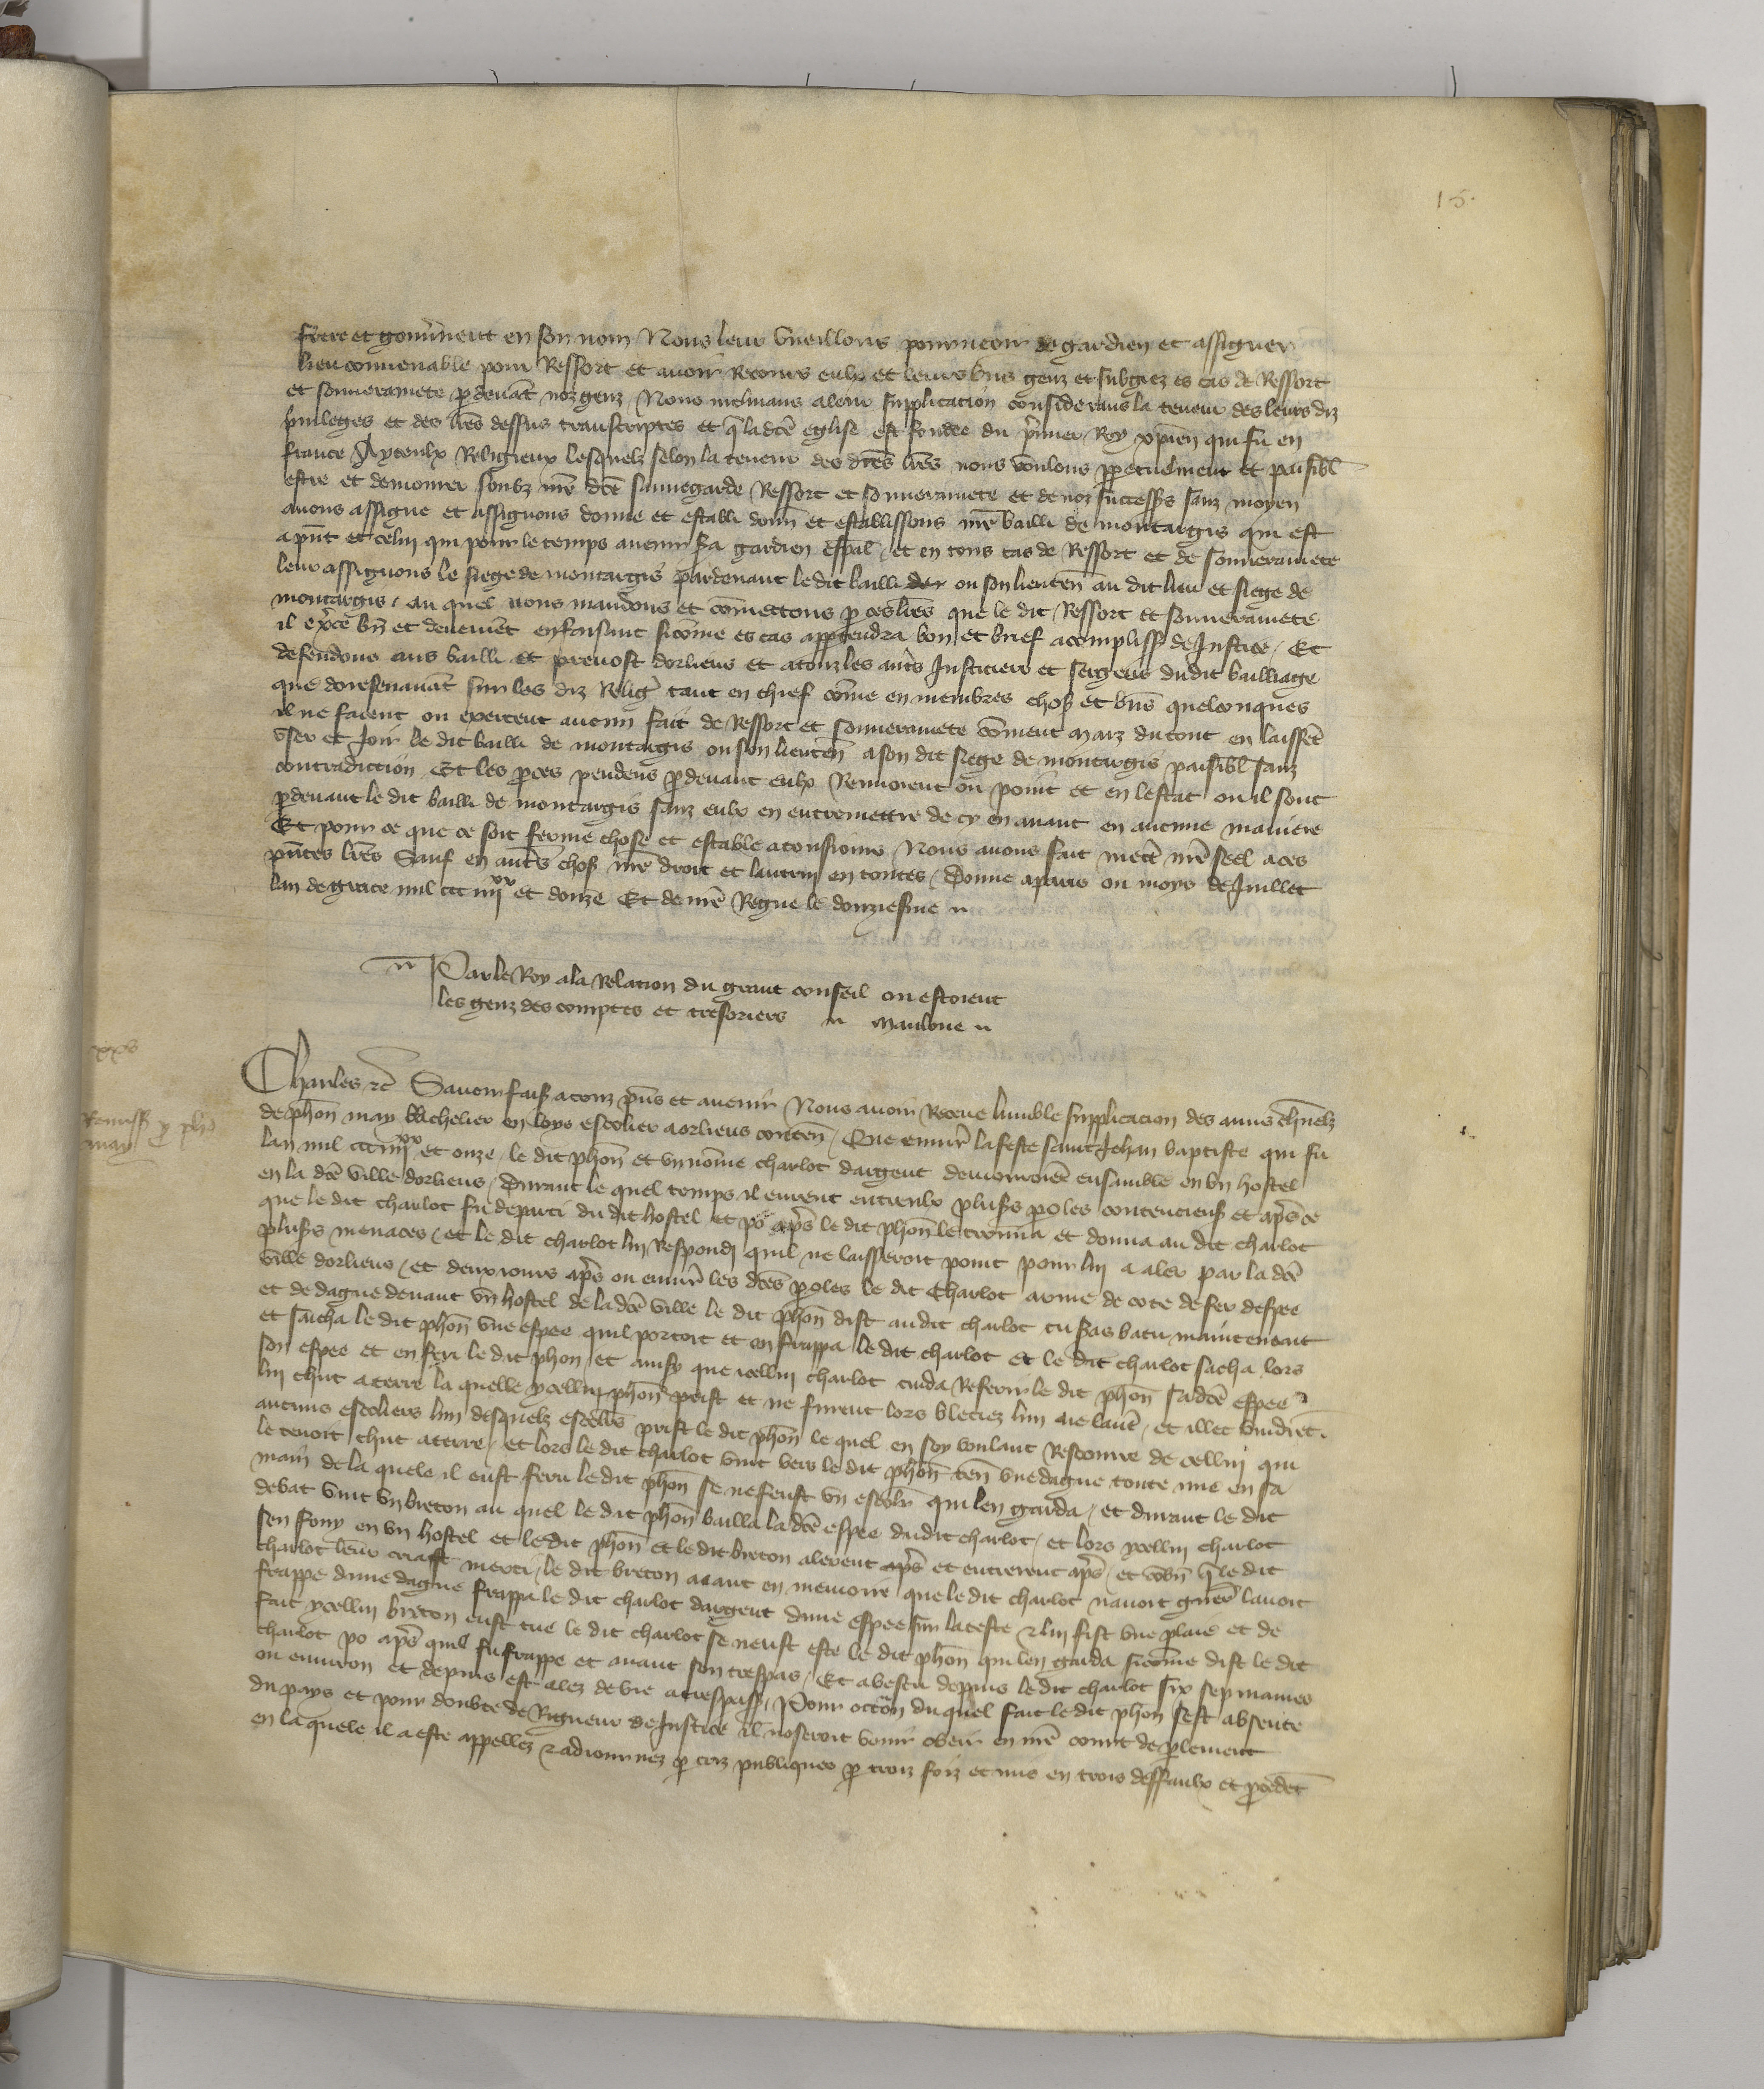 15.
frere et gouv̾nent en son nom Nous leur vueillons pourueoir de gardien et assigner
lieu conuenable pour Ressort et auoir Recours eulx et leurs bn̄s genz et subgiez es cas de Ressort
et souuerainete ꝑ deuāt noz genz Nous inclinans a leur supplicacion considerans la teneur des leurs diz
priuileges et des lr̄es dessus transcriptes et q̄ la dcē eglise est fondee du p̄mier Roy xp̄ien qui fu en
france A yceulx Religieux lesquelz selon la teneur des dcēs lr̄es nous voulons ꝑpetuelment et paisibl̄
estre et demourer soubz nr̄e dcē sauuegarde Ressort et souuerainete et de noz successrs̄ sanz moyen
auons assigne et assignons donne et establi donn̄ et establissons nr̄e bailli de montargis qui est
a pn̄t et celui qui pour le temps auenir sa gardien esp̄al / et en tous cas de Ressort et de souuerainete
leur assignons le siege de montargis pardeuant le dit bailli ou son lieuten̄ au dit lieu et siege de
montargis / au quel nous mandons et cōmettons ꝑ ces lr̄es que le dit Ressort et souuerainete
il ex̾ce bn̄ et deuemēt en faisant sicōme es cas appꝑtendra bon et brief acompliss̄ de Justice / Et
defendons aus bailli et preuost dorliens et a touz les aut̾s Justiciers et sergens du dit bailliage
que doresenauāt sur les diz Relig̾ tant en chief cōme en membres chos̄ et bn̄s quelconques
il ne facent ou exercent aucun fait de Ressort et souuerainete cōment maiz du tout en laissēt
vser et Joir le dit bailli de montargis ou son lieuten̄ a son dit siege de montargis paisibl̄ sanz
contradiction Et les ꝓces pendens ꝑdeuant eulx Renuoient ou point et en lestat ou il sont
ꝑdeuant le dit bailli de montargis sanz eulx en entremettre de cy en auant en aucune maniere
Et pour ce que ce soit ferme chose et estable a tousiours Nous auons fait mect̾ nr̄e seel a ces
pn̄tes lr̄es Sauf en aut̾s chos̄ nr̄e droit et lautrui en toutes / Donne a paris ou moys de Juillet
lan de grace mil ccc iiij xx et douze Et de nr̄e Regne le douziesme
Par le Roy a la Relacion du grant conseil ou estoient
les genz des comptes et tresoriers Maulone
xxv
Remiss̄ ꝑ phō
may
Charles ec̄ Sauoir fais̄ a touz pn̄s et auenir Nous auoir Receue lumble supplicacion des amis ch̾nelz
de phōn may bachelier en loys escolier a orliens conten̄ / Que enuir̄ la feste saint Jehan baptiste qui fu
lan mil ccc iiij xx et onze / le dit phōn et vn nōme charlot dargent demouroiēt ensamble en vn hostel
en la dcē ville dorliens / Durant le quel temps il eurent entreulx plus̄s ꝑoles contencieus̄ et ap̄s ce
que le dit charlot fu departi du dit hostel et po ap̄s le dit phōn le trouua et donna au dit charlot
plus̄s menaces / et le dit charlot lui Respondi quil ne laisseroit point pour lui a aler par la dcē
ville dorliens / et deux iours ap̄s ou enuir̄ les dcēs ꝑoles le dit Charlot arme de cote de fer despee
et de dague deuant vn hostel de la dcē ville le dit phōn dist au dit charlot tu s̾as batu maintenant
et saicha le dit phōn vne espee quil portoit et en frappa le dit charlot et le dit charlot sacha lors
son espee et en feri le dit phōn / et ainsy que icellui charlot cuida Referir le dit phōn sa dcē espee
lui chut a terre la quelle ycellui phōn prist et ne furent lors bleciez lun ne laut̾ / et illec vindrēt
aucuns escoliers lun desquelz escoliers prist le dit phōn le quel en soy voulant Rescourre de cellui qui
le tenoit chut a terre / et lors le dit charlot vint vers le dit phōn ten̄ vne dague toute nue en sa
main de la quele il eust feru le dit phōn se ne feust vn escol̾r qui len garda / et durant le dit
debat vint vn breton au quel le dit phōn bailla la dcē espee dudit charlot / et lors ycellui charlot
sen fouy en vn hostel et le dit phōn et le dit breton alerent ap̄s et entrerent ap̄s / et cōbn̄ q̄ le dit
charlot leur criast merci / le dit breton aiant en memoire que le dit charlot nauoit guer̄ lauoit
frappe dune dague frappa le dit charlot dargent dune espee sur la teste et lui fist vne plaie et de
fait ycellui breton eust tue le dit charlot se neust este le dit phōn qui len garda sicōme dist le dit
charlot po ap̄s quil fu frappe et auant son trespas / Et a vescu depuis le dit charlot six sepmaines
ou enuiron et depuis est alez de vie a trespass̄ / Pour occōn du quel fait le dit phōn sest absente
du pays et pour doubte de Rigueur de Justice il noseroit venir obeir en nr̄e court de ꝑlement
en la quele il a este appellez et adiournez ꝑ criz publiques ꝑ trois foiz et mis en trois deffaulx et ꝓcedēt